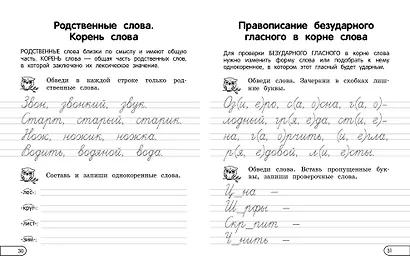 Родственные слова.
Корень слова
РОДСТВЕННЫЕ СЛОВА близки по смыслу и имеют общую
часть. КОРЕНЬ СЛОВА — общая часть родственных слов,
в которой заключено их лексическое значение.
Обведи в каждой строке только род-
ственные слова.
Звон, звонкий, звук.
Старт, старый, старик.
Нож, ножик, ножка.
Водить, водяной, вода.
Составь и запиши однокоренные слова.
-лес-
-круг-
-лист-
-зим-
30
Правописание безударного
гласного в корне слова
Для проверки БЕЗУДАРНОГО ГЛАСНОГО в корне слова
нужно изменить форму слова или подобрать к нему
однокоренное, в котором этот гласный будет ударным.
Обведи слова. Зачеркни в скобках лиш-
ние буквы.
Оз(и, е)ро, с(а, о)сна, г(а, о)-
лодный, гр(я, е)да, ст(и, е)-
на, г(а, о)рчить, (и, е)гла,
р(я, е)довой, л(и, е)сты.
Обведи слова. Вставь пропущенные бук-
вы, запиши проверочные слова.
Ц_на —
Ш_рфы —
Скр_пит —
Ч_нить —
31